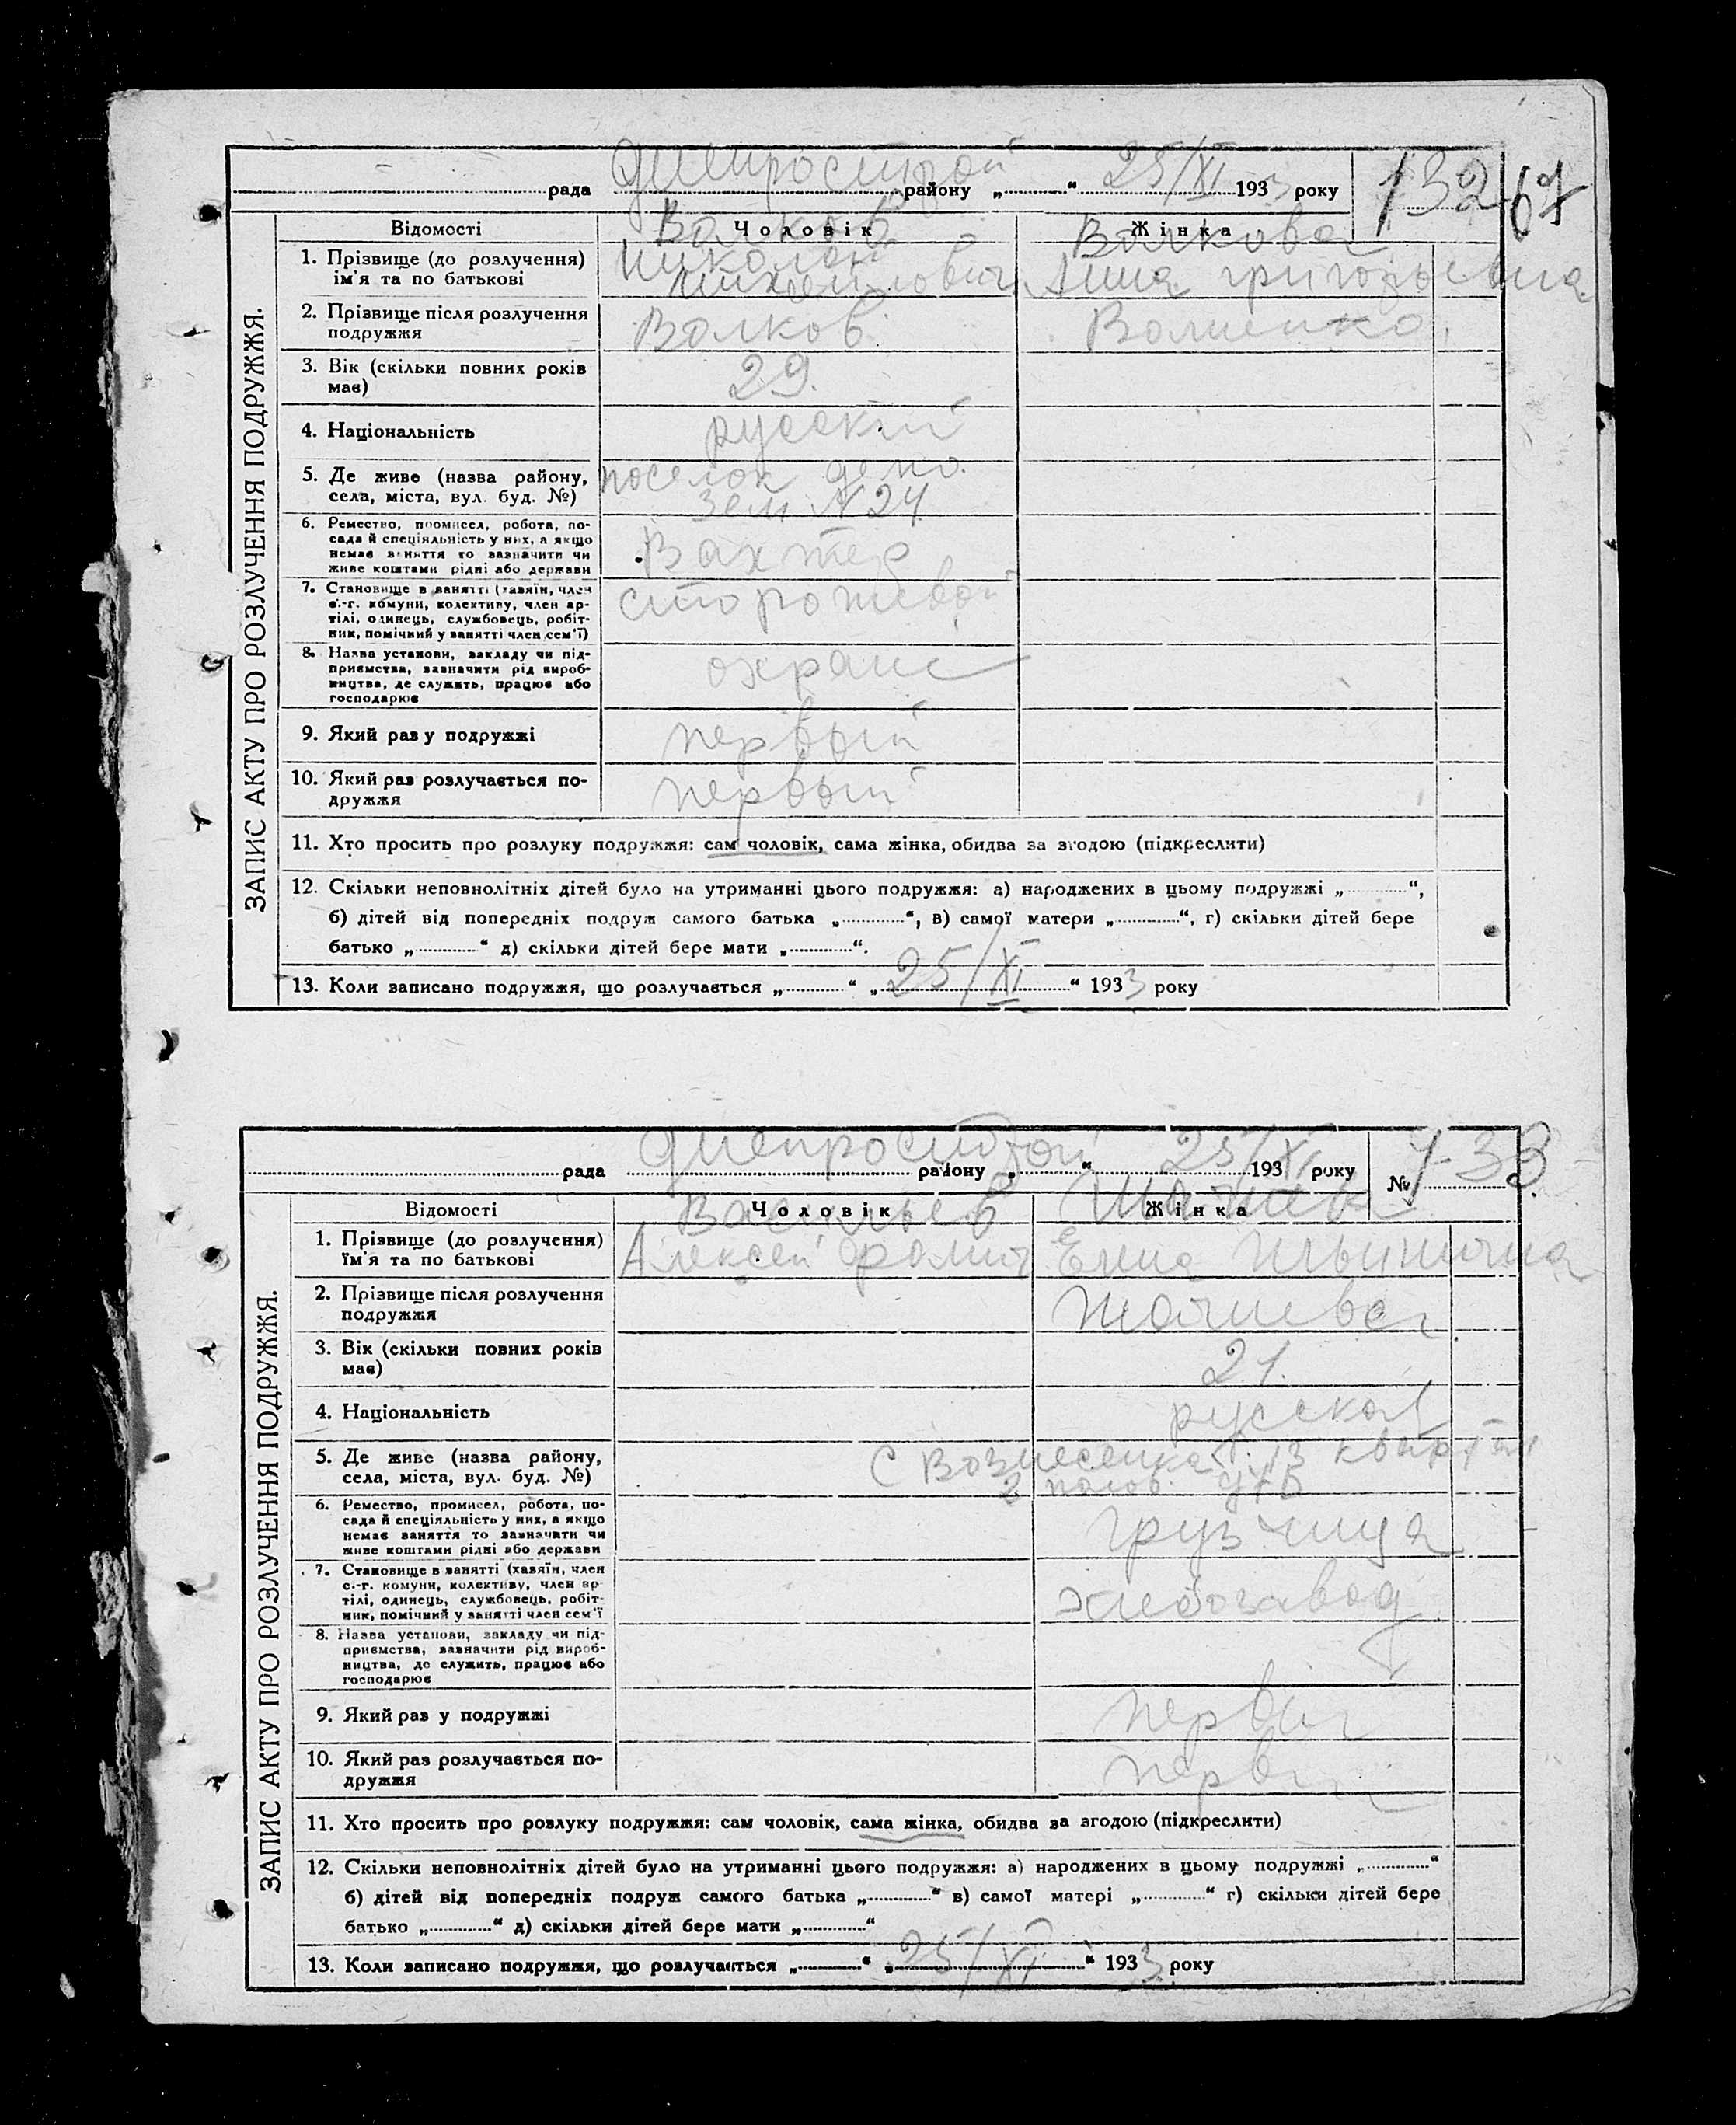 рада Днепрострой району „ “ 25/XI 1933 року 132 67
Відомості Чоловік Жінка
ЗАПИС АКТУ ПРО РОЗЛУЧЕННЯ ПОДРУЖЖЯ.
1. Прізвище (до розлучення) ім'я та по батькові Волков Николай Михайлович Волкова Анна Григорьевна
2. Прізвище після розлучення подружжя Волков
3. Вік (скільки повних років має) 29.
4. Національність русский
5. Де живе (назва району, села, міста, вул. буд. №) поселок депо. Зем. N 24
6. Ремество, промисел, робота, посада й спеціяльність у них, а якщо немає заняття то зазначити чи живе коштами рідні або держави Вахтер
7. Становище в занятті (хазяїн, член с.-г. комуни, колективу, член артілі, одинець, службовець, робітник, помічний у занятті член сем'ї) сторожевой
8. Назва установи, закладу чи підприємства, зазначити рід виробництва, де служить, працює або господарює охране
9. Який раз у подружжі первый
10. Який раз розлучається подружжя первый
11. Хто просить про розлуку подружжя: сам чоловік, сама жінка, обидва за згодою (підкреслити)
12. Скільки неповнолітніх дітей було на утриманні цього подружжя: а) народжених в цьому подружжі „ “,
б) дітей від попередніх подруж самого батька „ “, в) самої матери „ “, г) скільки дітей бере
батько „ “ д) скільки дітей бере мати „ “.
13. Коли записано подружжя, що розлучається „ “ „ 25/XI “ 1933 року
рада Днепрострой району „ “ 25/XI 193 року № 133
Відомості Чоловік Жінка
ЗАПИС АКТУ ПРО РОЗЛУЧЕННЯ ПОДРУЖЖЯ.
1. Прізвище (до розлучення) ім'я та по батькові Васильев Алексей Елена Ильинична
2. Прізвище після розлучення подружжя
3. Вік (скільки повних років має) 21.
4. Національність русская
5. Де живе (назва району, села, міста, вул. буд. №) С Вознесенка 13 квартал
6. Ремество, промисел, робота, посада й спеціяльність у них, а якщо немає заняття то зазначати чи живе коштами рідні або держави грузчица
7. Становище в занятті (хазяїн, член с.-г. комуни, колективу, член артілі, одинець, службовець, робітник, помічний у занятті член сем'ї хлебозавод
8. Назва установи, закладу чи підприємства, зазначити рід виробництва, де служить, працює або господарює
9. Який раз у подружжі
10. Який раз розлучається подружжя
11. Хто просить про розлуку подружжя: сам чоловік, сама жінка, обидва за згодою (підкреслити)
12. Скільки неповнолітніх дітей було на утриманні цього подружжя: а) народжених в цьому подружжі „ “
б) дітей від попередніх подруж самого батька „ “ в) самої матері „ “ г) скільки дітей бере
батько „ “ д) скільки дітей бере мати „ “
13. Коли записано подружжя, що розлучається „ “ „ 25/XI “ 1933 року